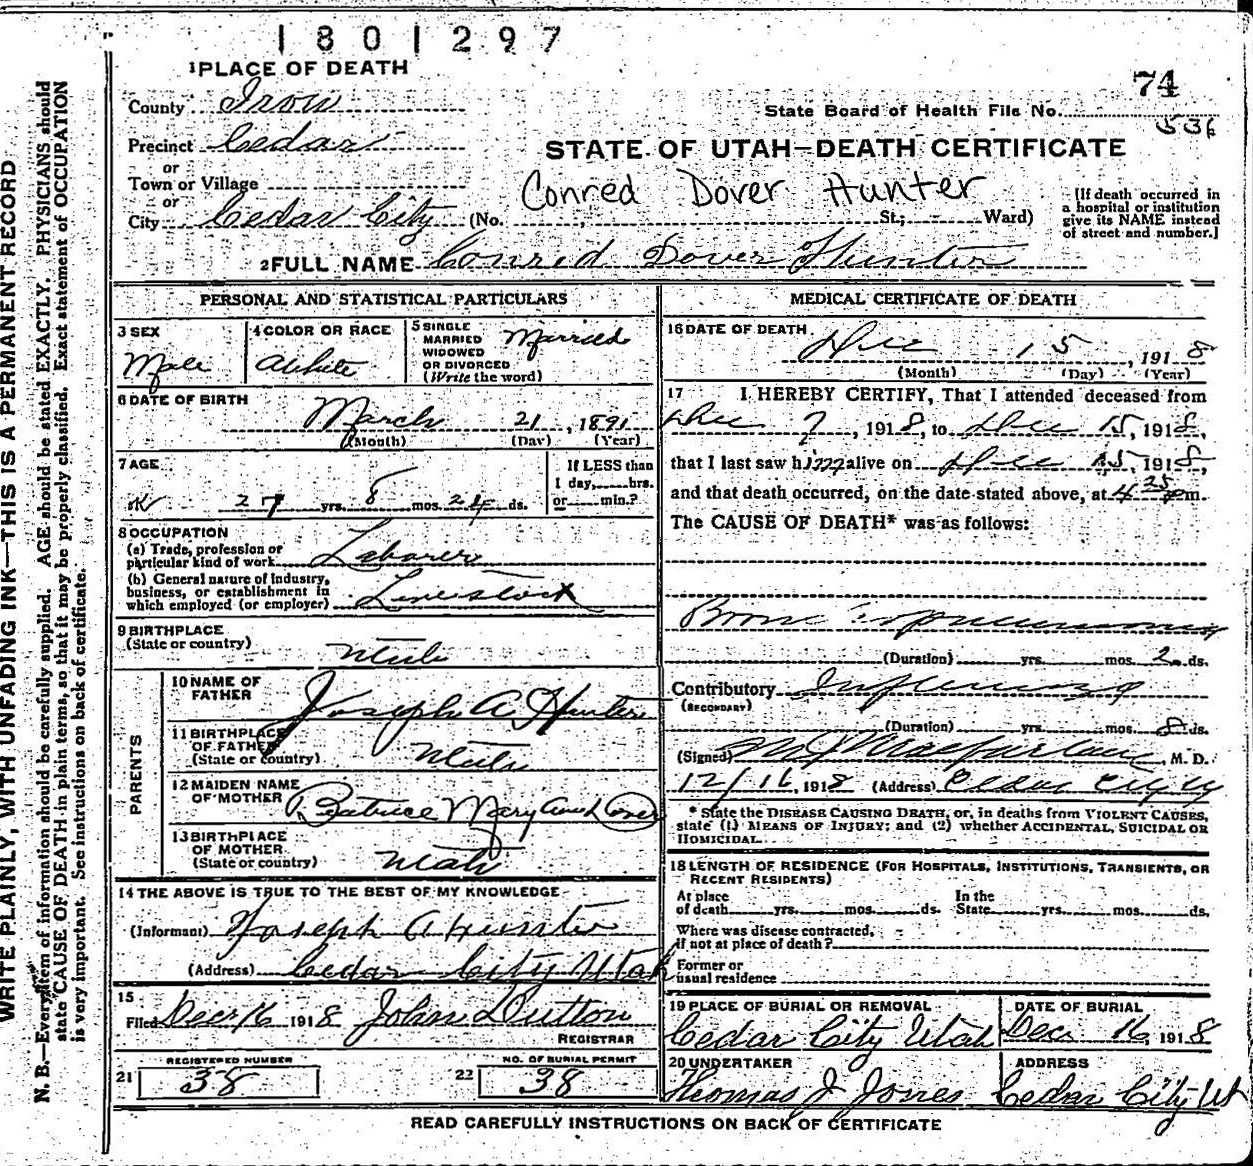 1801297
1 PLACE OF DEATH
74
County Iron
State Board of Health File No.
536
Precinct Cedar
STATE OF UTAH—DEATH CERTIFICATE
or
Town or Village
Conred Dover Hunter
or
City Cedar City (No. St.; Ward)
[If death occurred in
a hospital or institution
give its NAME instead
of street and number.]
2 FULL NAME Conred Dover Hunter
PERSONAL AND STATISTICAL PARTICULARS
3 SEX
Male
4 COLOR OR RACE
White
5 SINGLE
MARRIED
WIDOWED
OR DIVORCED
(Write the word)
Married
6 DATE OF BIRTH
March 21, 1891
(Month) (Day) (Year)
7 AGE
27 yrs. 8 mos. 24 ds.
If LESS than
1 day, hrs.
or min.?
8 OCCUPATION
(a) Trade, profession or
particular kind of work Laborer
(b) General nature of industry,
business, or establishment in
which employed (or employer) Livestock
9 BIRTHPLACE
(State or country)
Utah
PARENTS
10 NAME OF
FATHER
Joseph A. Hunter
11 BIRTHPLACE
OF FATHER
(State or country)
Utah
12 MAIDEN NAME
OF MOTHER
Beatrice Mary Ann Dover
13 BIRTHPLACE
OF MOTHER
(State or country)
Utah
14 THE ABOVE IS TRUE TO THE BEST OF MY KNOWLEDGE
(Informant) Joseph A Hunter
(Address) Cedar City Utah
15
Filed Dec 16 1918 John Dutton
REGISTRAR
REGISTERED NUMBER
21 38
NO. OF BURIAL PERMIT
22 38
MEDICAL CERTIFICATE OF DEATH
16 DATE OF DEATH
Dec 15, 1918
(Month) (Day) (Year)
17 I HEREBY CERTIFY, That I attended deceased from
Dec 7, 1918, to Dec 15, 1918,
that I last saw him alive on Dec 15, 1918,
and that death occurred, on the date stated above, at 4 25 p m.
The CAUSE OF DEATH* was as follows:
Bronc opneumonia
(Duration) yrs. mos. 2 ds.
Contributory Influenza
(SECONDARY)
(Duration) yrs. mos. 8 ds.
(Signed) M J Macfarlane, M. D.
12/16, 1918 (Address) Cedar City U
* State the DISEASE CAUSING DEATH, or, in deaths from VIOLENT CAUSES,
state (1) MEANS OF INJURY; and (2) whether ACCIDENTAL, SUICIDAL OR
HOMICIDAL.
18 LENGTH OF RESIDENCE (FOR HOSPITALS, INSTITUTIONS, TRANSIENTS, OR
RECENT RESIDENTS)
At place In the
of death yrs. mos. ds. State yrs. mos. ds.
Where was disease contracted,
if not at place of death?
Former or
usual residence
19 PLACE OF BURIAL OR REMOVAL
Cedar City Utah
DATE OF BURIAL
Dec 16, 1918
20 UNDERTAKER
Thomas J. Jones
ADDRESS
Cedar City Ut
READ CAREFULLY INSTRUCTIONS ON BACK OF CERTIFICATE
WRITE PLAINLY, WITH UNFADING INK—THIS IS A PERMANENT RECORD
N. B.—Every item of information should be carefully supplied. AGE should be stated EXACTLY. PHYSICIANS should
state CAUSE OF DEATH in plain terms, so that it may be properly classified. Exact statement of OCCUPATION
is very important. See instructions on back of certificate.